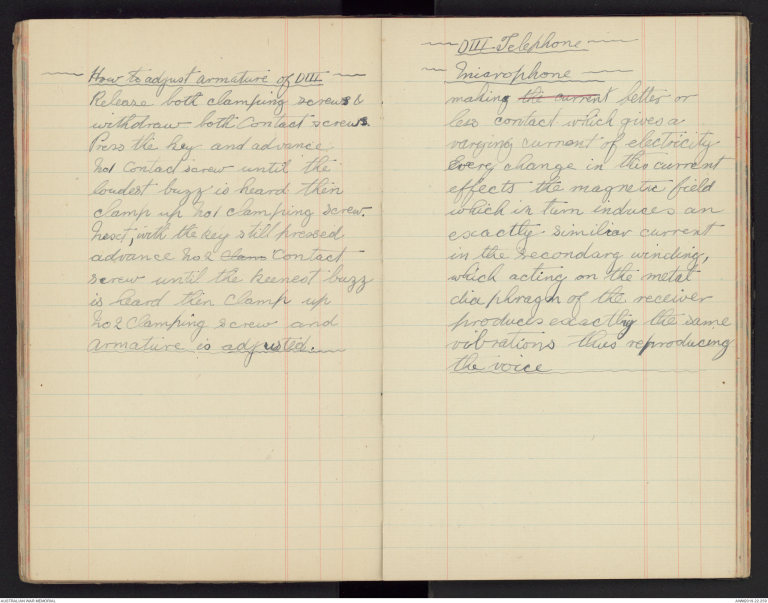 How to adjust armature of DIII
Release both clamping screws &
withdraw both Contact screws.
Press the key and advance
No1 Contact screw until the
loudest buzz is heard then
clamp up No1 clamping screw.
Next, with the key still pressed
advance No2 Clam Contact
screw until the keenest buzz
is heard then Clamp up
No2 Clamping screw and
armature is adjusted.
DIII Telephone
Microphone
making the current better or
less contact which gives a
varying current of electricity
Every change in this current
effects the magnetic field
which in turn induces an
exactly similiar current
in the secondary winding,
which acting on the metal
diaphragm of the receiver
produces exactly the same
vibrations thus reproducing
the voice
AUSTRALIAN WAR MEMORIAL